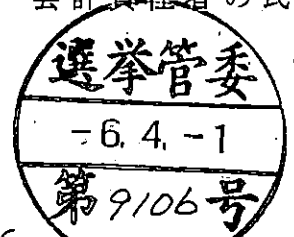 会計責任者の氏
選挙管委
-6.4.-1
第9106号